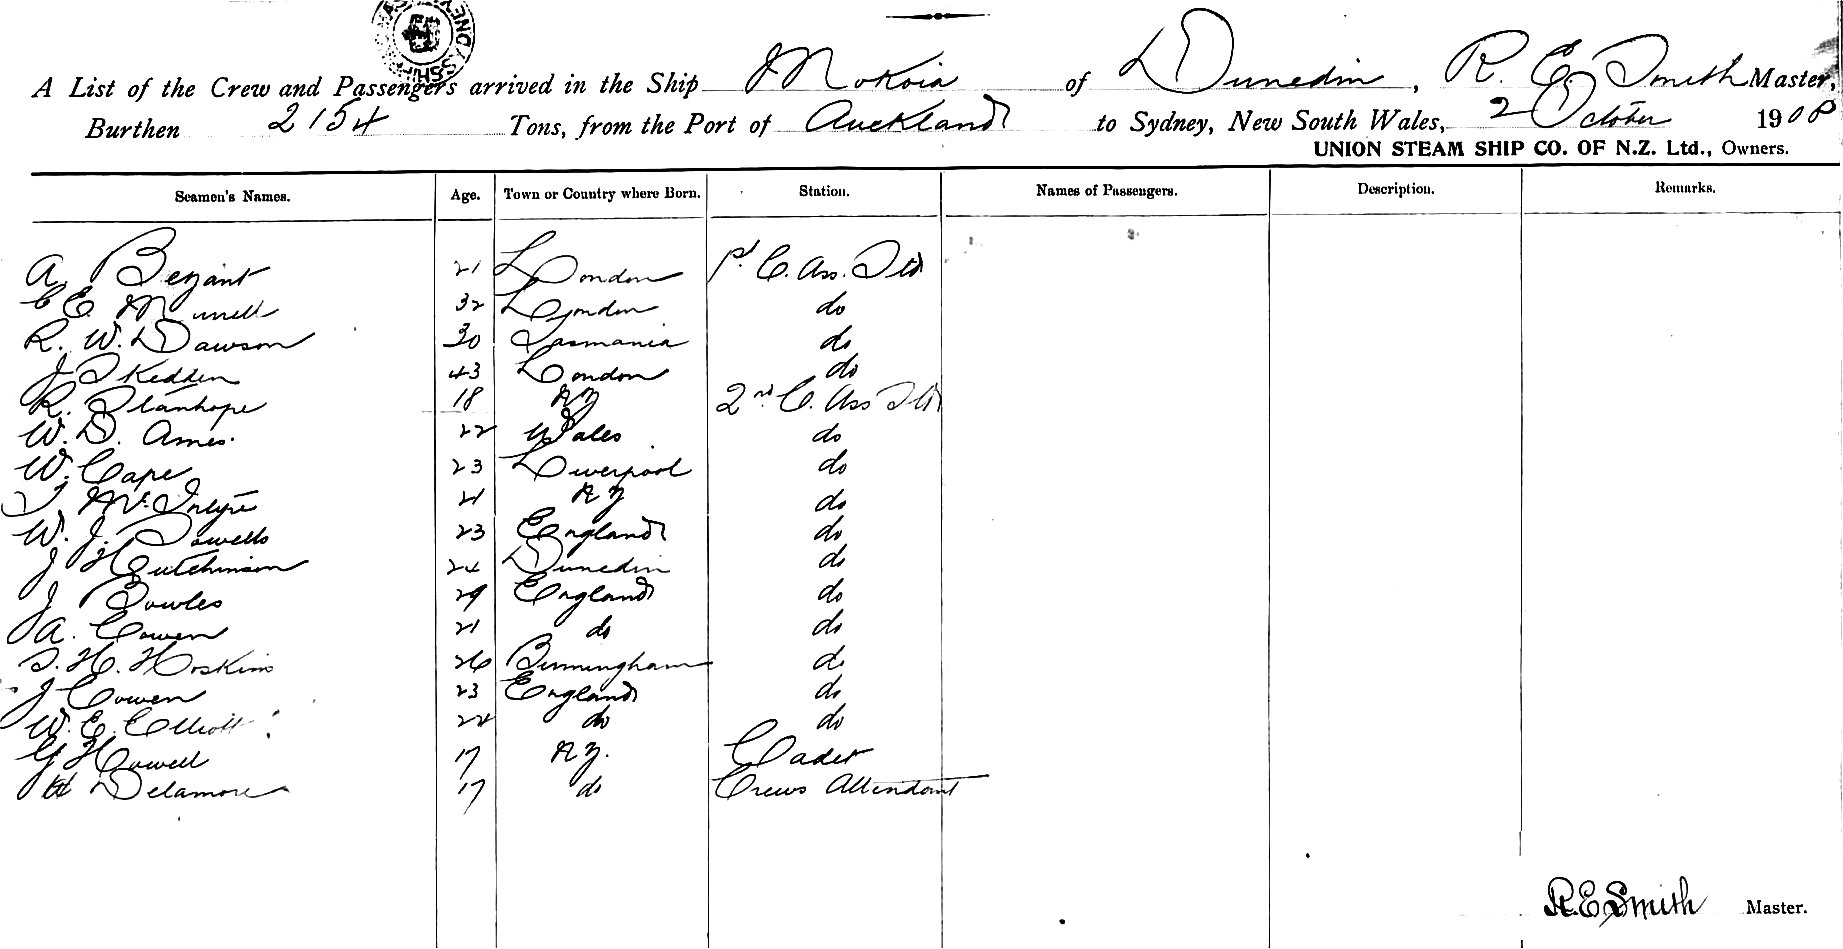 A List of the Crew and Passengers arrived in the Ship Mokoia of Dunedin, R. E. Smith Master,
Burthen 2154 Tons, from the Port of Auckland to Sydney, New South Wales, 2 October 1908
UNION STEAM SHIP CO. OF N.Z. Ltd., Owners.
Seamen's Names. Age. Town or Country where Born. Station. Names of Passengers. Description. Remarks.
A. Bezant 21 London 1st C. Ass. Std
C E. 32 London do
R. W. Dawson 30 Tasmania do
J Skedden 43 London do
R. Stanhope 18 NZ 2nd C. Ass Std
W. D. Ames. 22 Wales do
W. Cape 23 Liverpool do
J McIntyre 21 NZ do
W. J. Powells 23 England do
J Hutchinson 24 Dunedin do
J Bowles 29 England do
A. Cowen 21 do do
S. H. Hoskins 26 Birmingham do
J Cowen 23 England do
W. E. Elliott 22 do do
G Howell 17 NZ. Cadet
H Delamore 17 do Crews Attendant
R.E Smith Master.